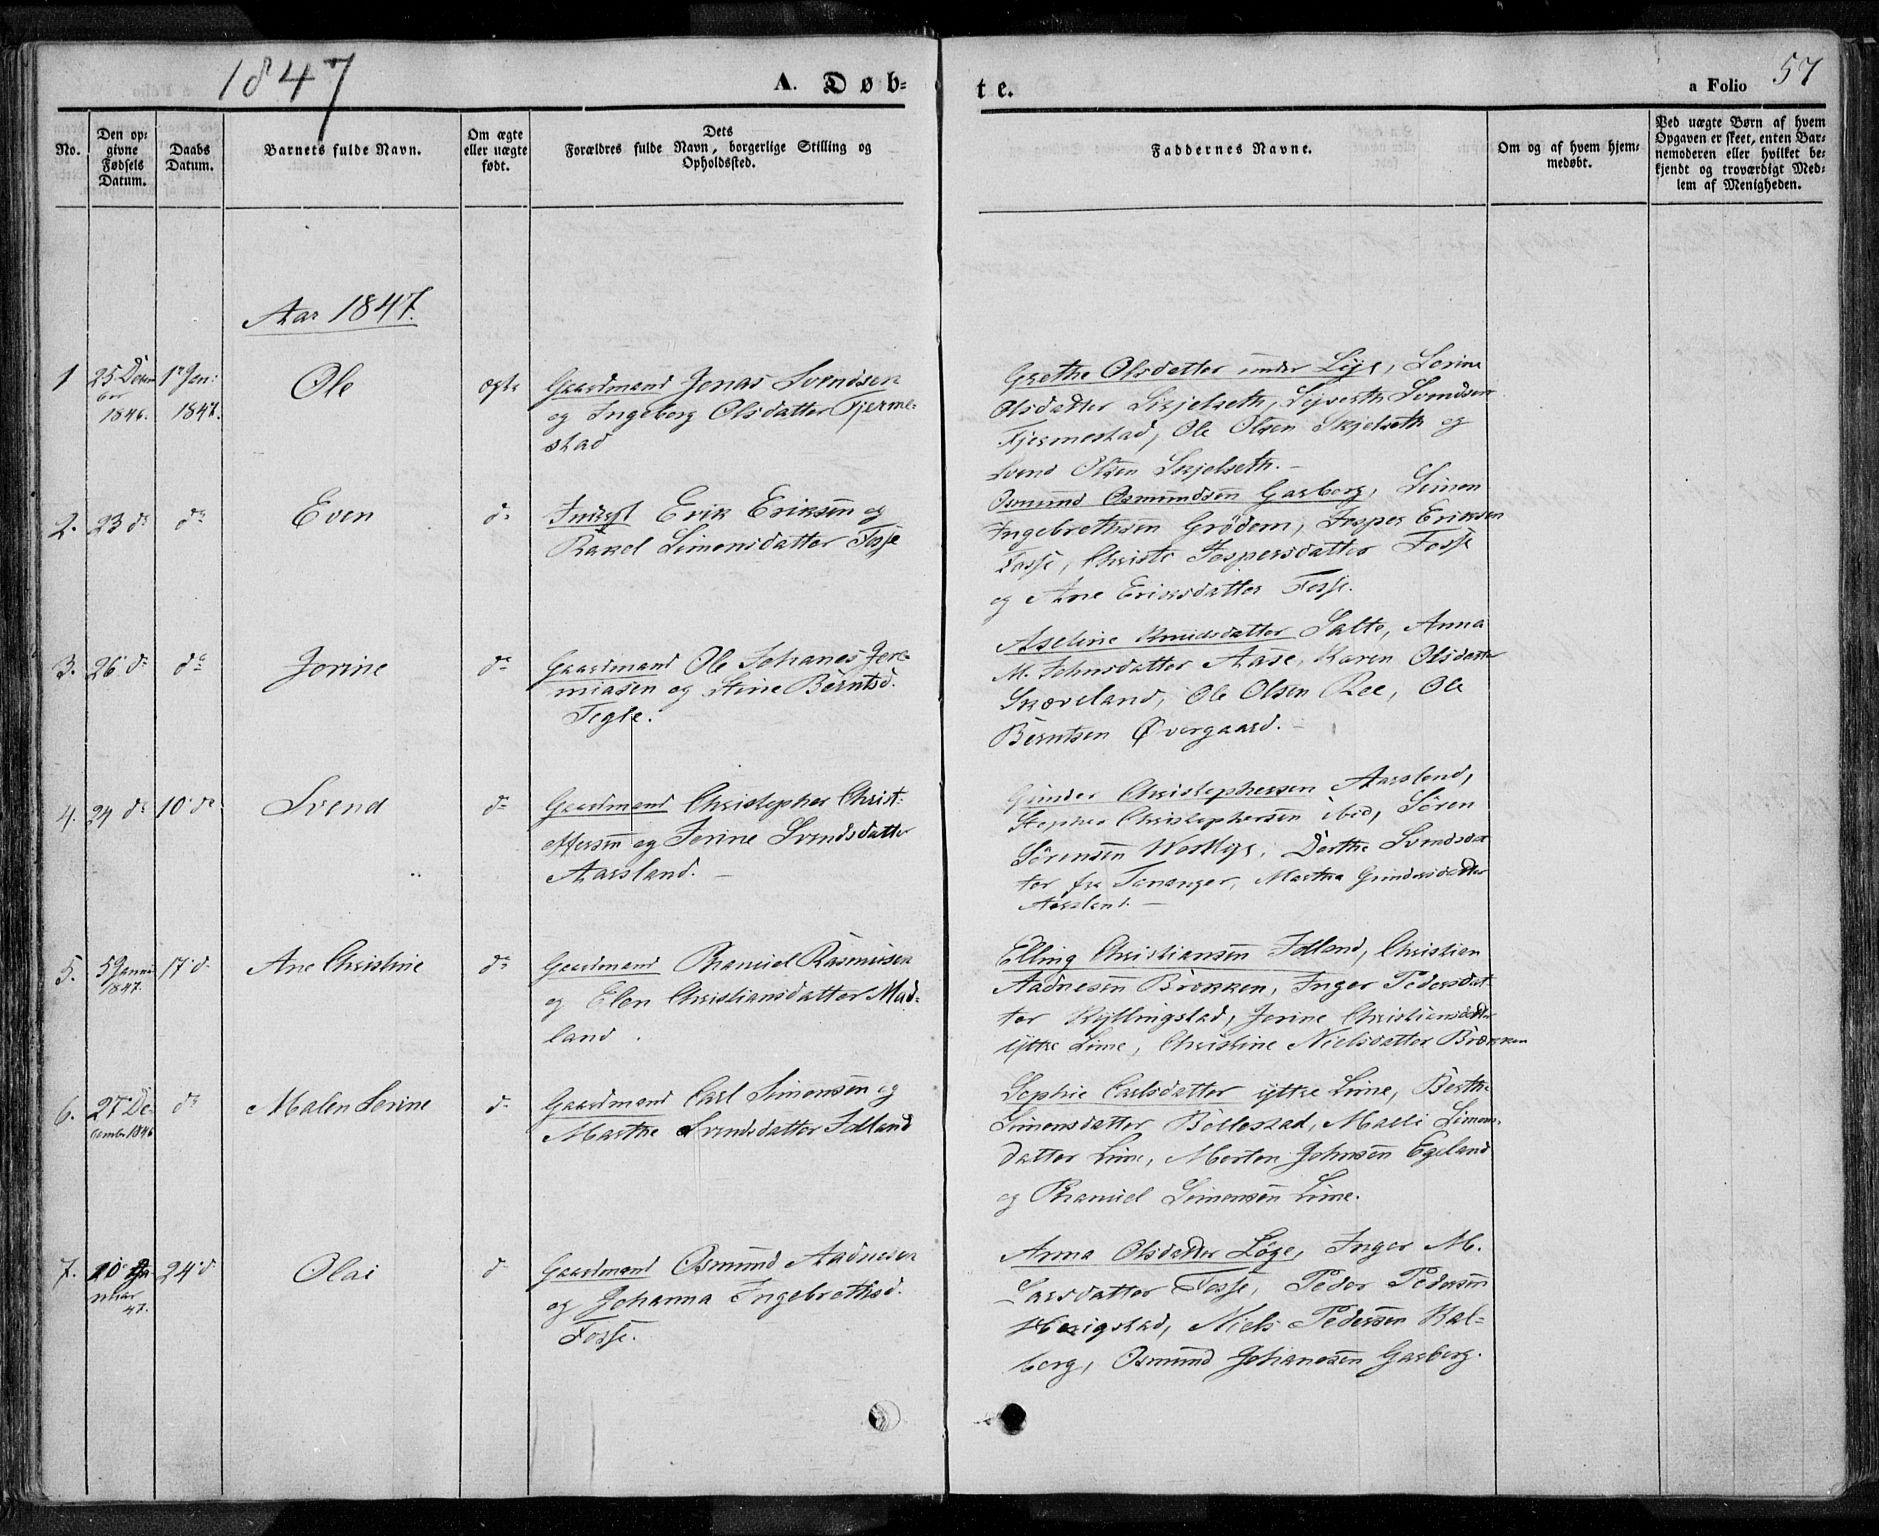 1847
A. Døb-
te.
a Folio 57
No.
Den op-
givne
Fødsels
Datum.
Daabs
Datum.
Barnets fulde Navn.
Om ægte
eller uægte
født.
Dets
Forældres fulde Navn, borgerlige Stilling og
Opholdssted.
Faddernes Navne.
Om og af hvem hjem-
medøbt.
Ved uægte Børn af hvem
Opgaven er skeet, enten Bar-
nemoderen eller hvilket be-
kjendt og troværdigt Med-
lem af Menigheden.
Aar 1847.
1
25 Decem
ber
1846.
1e Jan:
1847.
Ole
ægte
Gaardmand Jonas Svendsen
og Ingeborg Olsdatter Fjerme-
stad
Grethe Olsdatter under Lye, Serine
Olsdatter Skjelseth, Syverth Svendsen
Fjermestad, Ole Olsen Skjelseth og
Svend Olsen Skjelseth.
2.
23 do
do
Even
do
Inderst Erik Eriksen og
Rakel Simonsdatter Fosse
Osmund Osmundsen Garborg, Simon
Ingebrethsen Grødem, Jesper Eriksen
Fosse, Christi Jespersdatter Fosse
og Ane Eriksdatter Fosse.
3.
26 do
do
Jorine
do
Gaardmand Ole Johanes Jere-
miasen og Stine Berntsd.
Tegle.
Aseline Knudsdatter Salte, Anna
M. Johnsdatter Aase, Karen Olsdatter
Skæveland, Ole Olsen Ree, Ole
Berntsen Øvergaard.
4.
24 do
10 do
Svend
do
Gaardmand Christopher Christ-
offersen og Jorine Svendsdatter
Aarsland.
Gunder Christophersen Aarsland,
Stephen Christophersen ibid, Søren
Sørensen Westlye, Dorthe Svendsdat
ter fra Tananger, Martha Gundersdatter
Aarsland.
5.
5 Janua
1847.
17 do
Ane Christine
do
Gaardmand Thamuel Rasmusen
og Elen Christiansdatter Mad-
land.
Elling Christiansen Idland, Christian
Aadnesen Brekken, Inger Pedersdat-
ter Kyllingstad, Jorine Christiansdatter
ÿttre Lime, Christine Nielsdatter Brekken
6.
27 De-
cember 1846
do
Malen Serine
do
Gaardmand Carl Simonsen og
Marthe Svendsdatter Idland
Sophie Carlsdatter ÿttre Lime, Berthe
Simonsdatter Bøllestad, Malli Simons-
datter Lime, Morten Johnsen Egeland
og Thamuel Simonsen Lime.
7.
10 Ja
nuar
47.
24 do
Olai
do
Gaardmand Osmund Aadnesen
og Johanna Ingebrethsd.
Fosse.
Anna Olsdatter Løge, Inger M.
Larsdatter Fosse, Peder Pedersen
Herigstad, Niels Pedersen Kal-
berg, Osmund Johanesen Garborg.